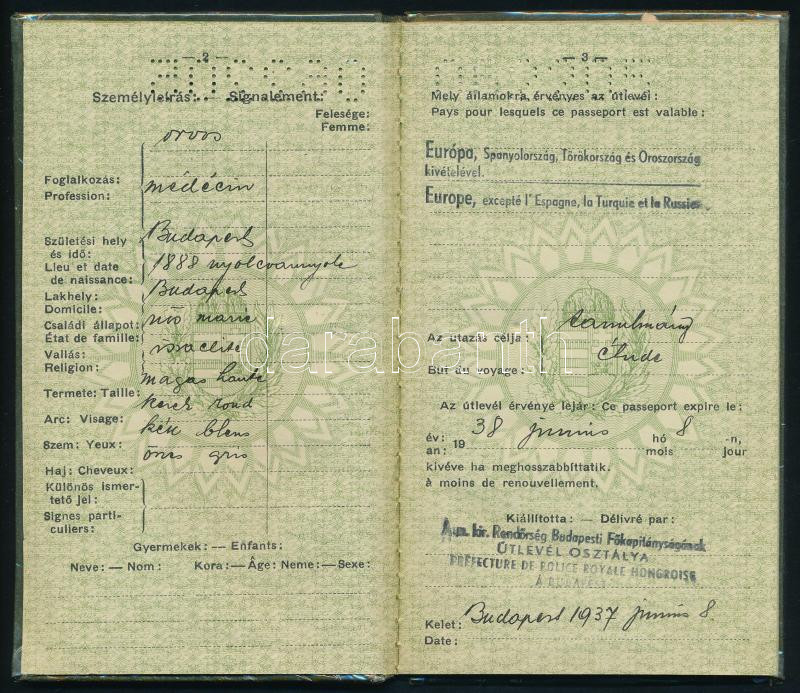 — 2 —
Személyleírás: — Signalement:
Felesége:
Femme:
orvos
Foglalkozás:
Profession:
médécin
Születési hely
és idő:
Budapest
Lieu et date
de naissance:
1888
Lakhely:
Domicile:
Budapest
Családi állapot:
État de famille:
nős marié
Vallás:
Religion:
israelite
Termete: Taille:
magas haute
Arc: Visage:
kerek rond
Szem: Yeux:
kék bleus
Haj: Cheveux:
őszes gris
Különös ismer-
tető jel:
Signes parti-
culiers:
Gyermekek: — Enfants:
Neve: — Nom: Kora: — Âge: Neme: — Sexe:
— 3 —
Mely államokra érvényes az útlevél:
Pays pour lesquels ce passeport est valable:
Európa, Spanyolország, Törökország és Oroszország
kivételével.
Europe, excepté l'Espagne, la Turquie et la Russie
Az utazás célja: tanulmány
But du voyage: Étude
Az útlevél érvénye lejár: Ce passeport expire le:
év: 1938 junius hó 8 -n,
an: mois jour
kivéve ha meghosszabbíttatik.
à moins de renouvellement.
Kiállította: — Délivré par:
M. kir. Rendőrség Budapesti Főkapitányságának
ÚTLEVÉL OSZTÁLYA
PRÉFECTURE DE POLICE ROYALE HONGROISE
À BUDAPEST
Kelet: Budapest 1937 junius 8
Date:
darabanth